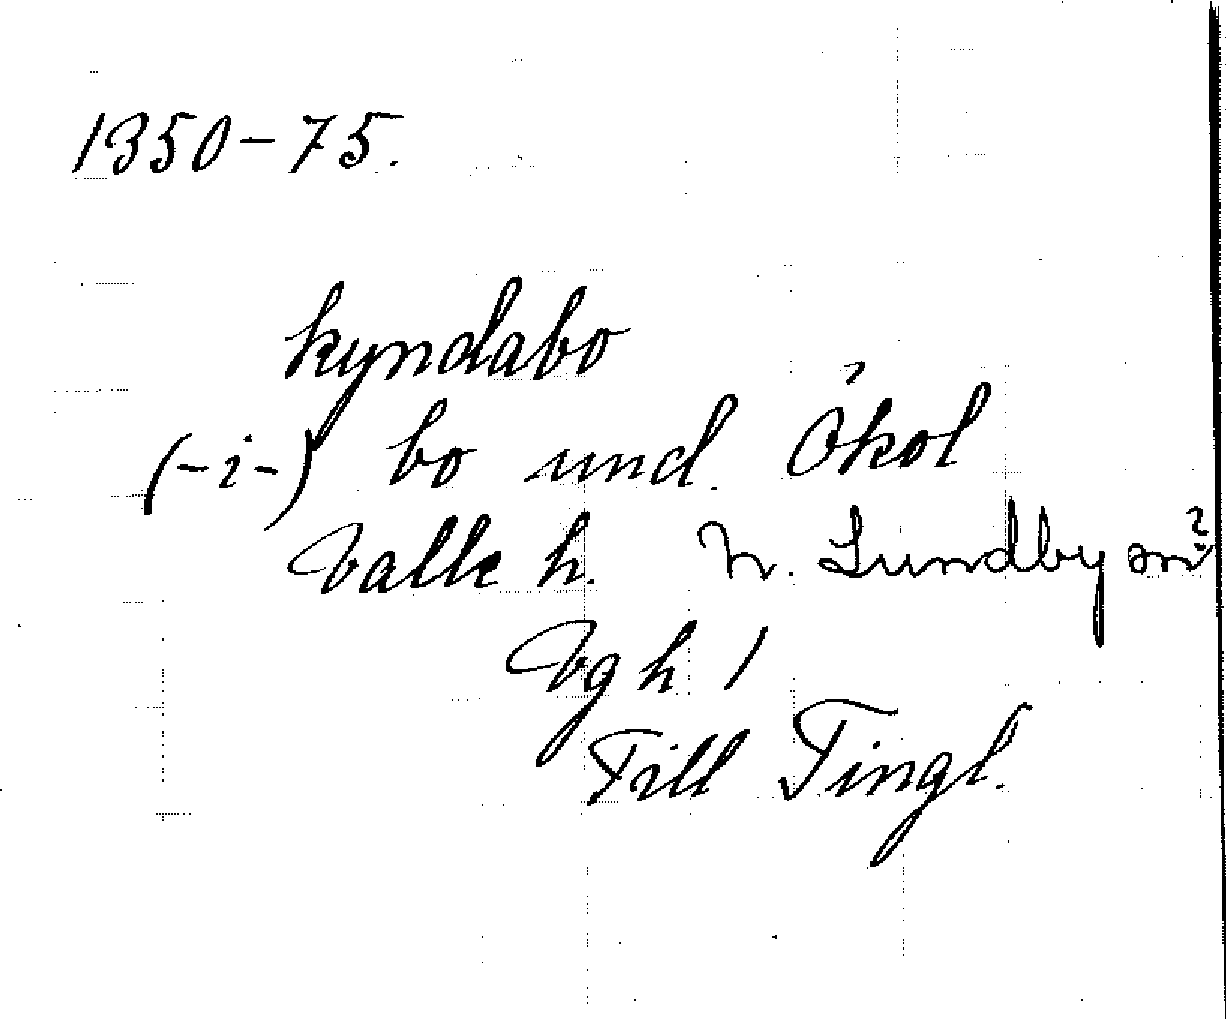 1350-75.
kyndabo
(-i-) bo und. Ökol
Valle h. N. Lundby sn?
Vg h 1
Till Tingl.